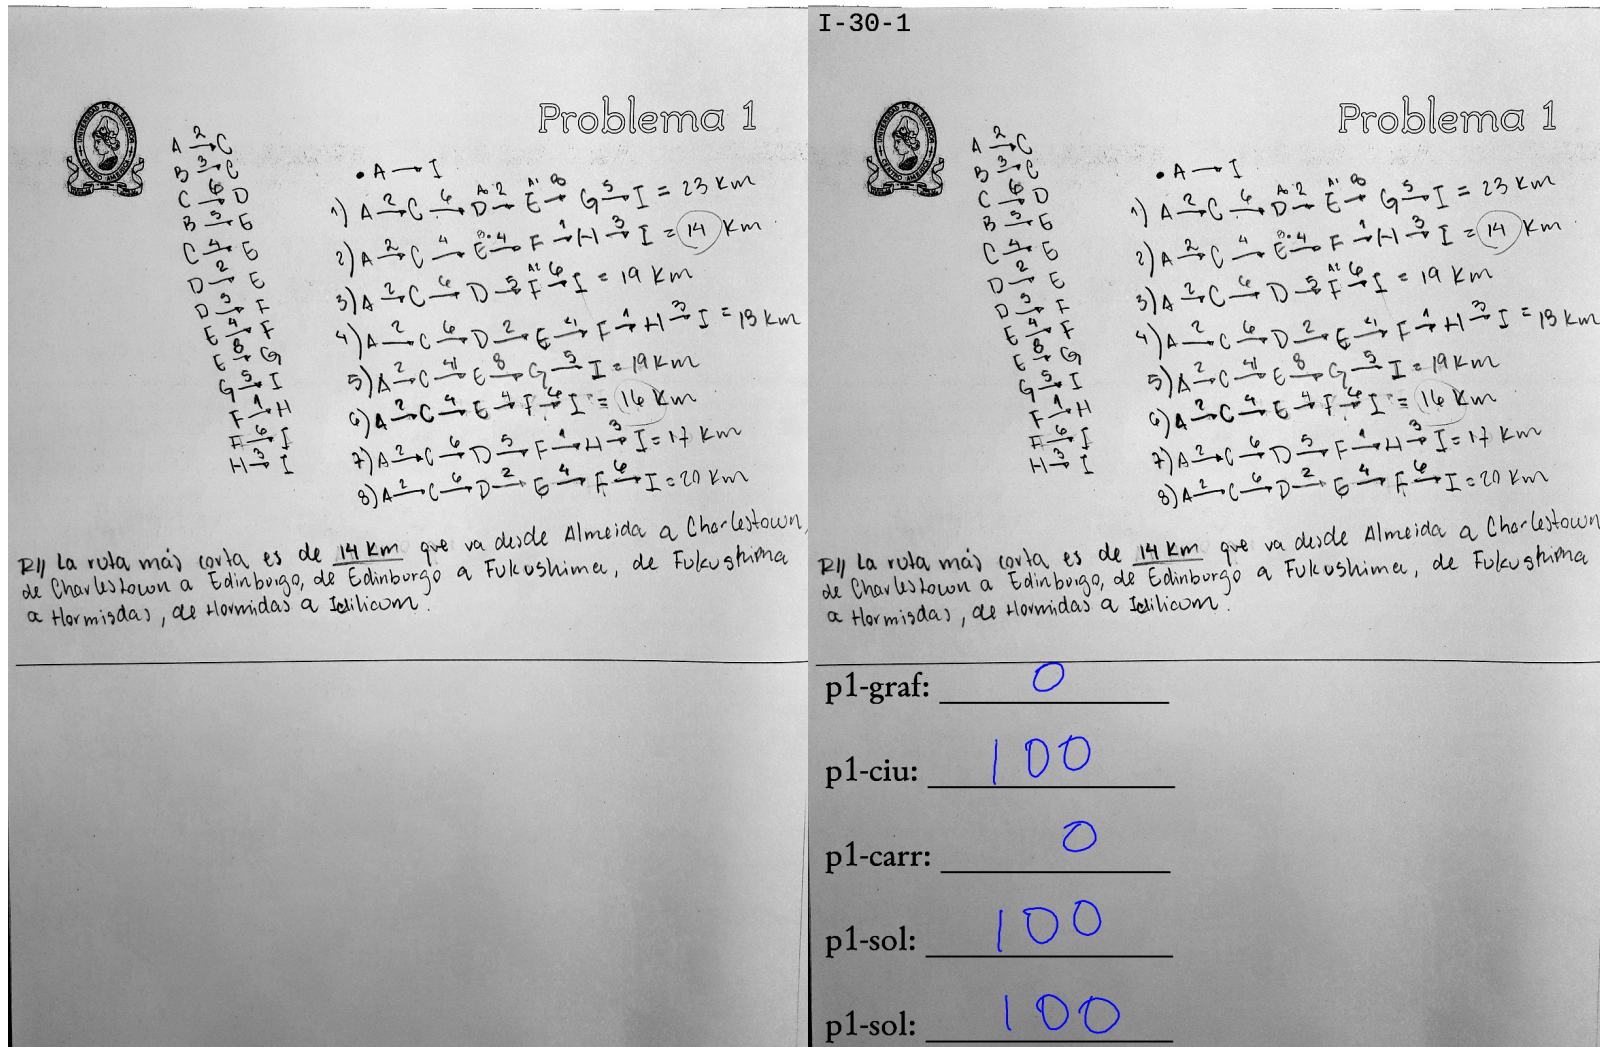 Problema 1
A 2→ C
B 3→ C
C 6→ D
B 5→ E
C 4→ E
D 2→ E
D 5→ F
E 4→ F
E 8→ G
G 5→ I
F 1→ H
F 6→ I
H 3→ I
• A → I
1) A 2→ C 6→ D 2→ E 8→ G 5→ I = 23 Km
2) A 2→ C 4→ E 4→ F 1→ H 3→ I = 14 Km
3) A 2→ C 6→ D 5→ F 6→ I = 19 Km
4) A 2→ C 6→ D 2→ E 4→ F 1→ H 3→ I = 18 Km
5) A 2→ C 4→ E 8→ G 5→ I = 19 Km
6) A 2→ C 4→ E 4→ F 6→ I = 16 Km
7) A 2→ C 6→ D 5→ F 1→ H 3→ I = 17 Km
8) A 2→ C 6→ D 2→ E 4→ F 6→ I = 20 Km
R// La ruta más corta es de 14 Km que va desde Almeida a Charlestown,
de Charlestown a Edinburgo, de Edinburgo a Fukushima, de Fukushima
a Hormisdas, de Hormidas a Idilicum.
I-30-1
Problema 1
A 2→ C
B 3→ C
C 6→ D
B 5→ E
C 4→ E
D 2→ E
D 5→ F
E 4→ F
E 8→ G
G 5→ I
F 1→ H
F 6→ I
H 3→ I
• A → I
1) A 2→ C 6→ D 2→ E 8→ G 5→ I = 23 Km
2) A 2→ C 4→ E 4→ F 1→ H 3→ I = 14 Km
3) A 2→ C 6→ D 5→ F 6→ I = 19 Km
4) A 2→ C 6→ D 2→ E 4→ F 1→ H 3→ I = 18 Km
5) A 2→ C 4→ E 8→ G 5→ I = 19 Km
6) A 2→ C 4→ E 4→ F 6→ I = 16 Km
7) A 2→ C 6→ D 5→ F 1→ H 3→ I = 17 Km
8) A 2→ C 6→ D 2→ E 4→ F 6→ I = 20 Km
R// La ruta más corta es de 14 Km que va desde Almeida a Charlestown
de Charlestown a Edinburgo, de Edinburgo a Fukushima, de Fukushima
a Hormisdas, de Hormidas a Idilicum.
p1-graf: 0
p1-ciu: 100
p1-carr: 0
p1-sol: 100
p1-sol: 100